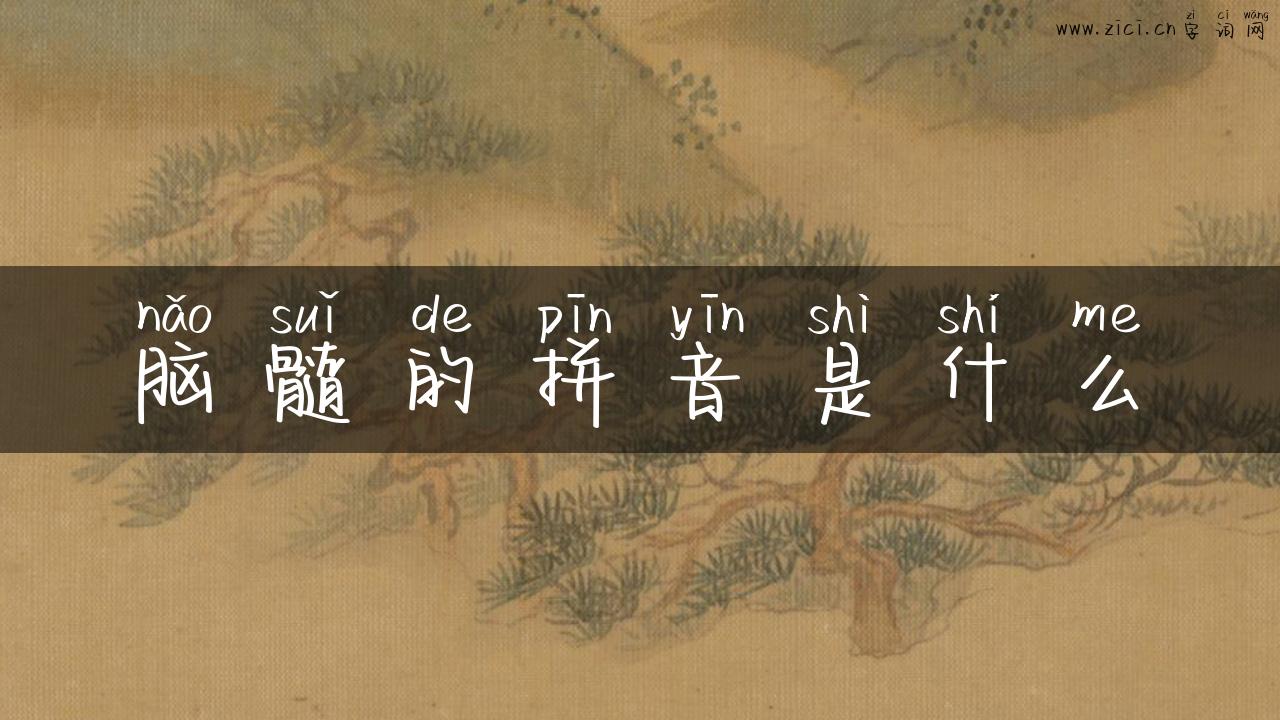 zì cí wǎng
www.zici.cn 字词网
nǎo suǐ de pīn yīn shì shí me
脑髓的拼音是什么